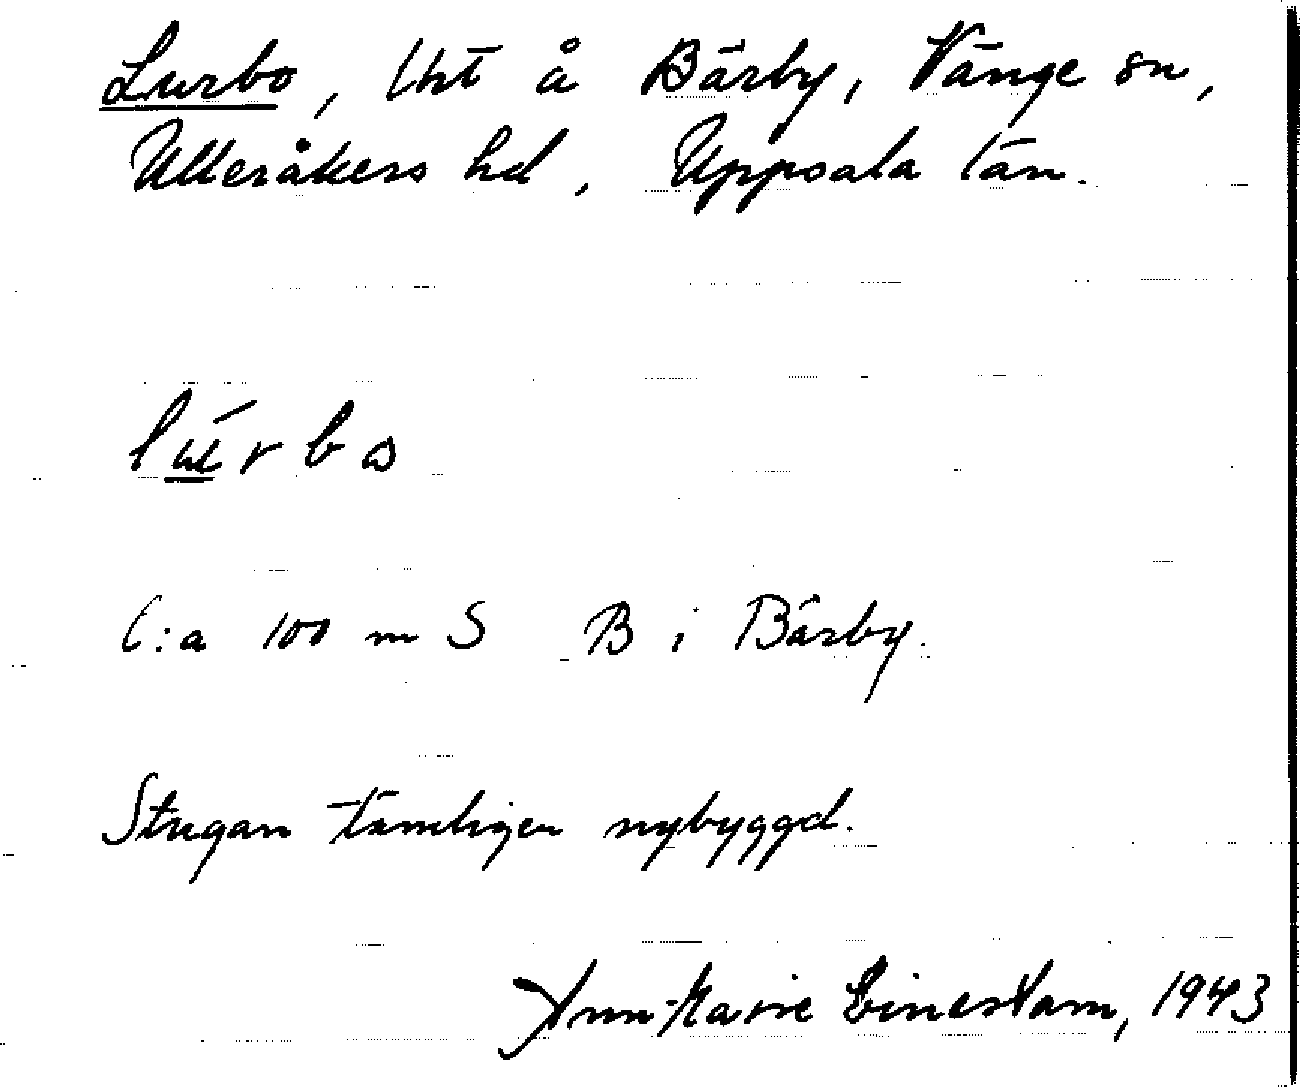 Lurbo, lht å Bärby, Vänge sn,
Ulleråkers hd, Uppsala län.
lú̲rbɷ
C:a 100 m S B i Bärby.
Stugan tämligen nybyggd.
Ann-Marie Einestam, 1943